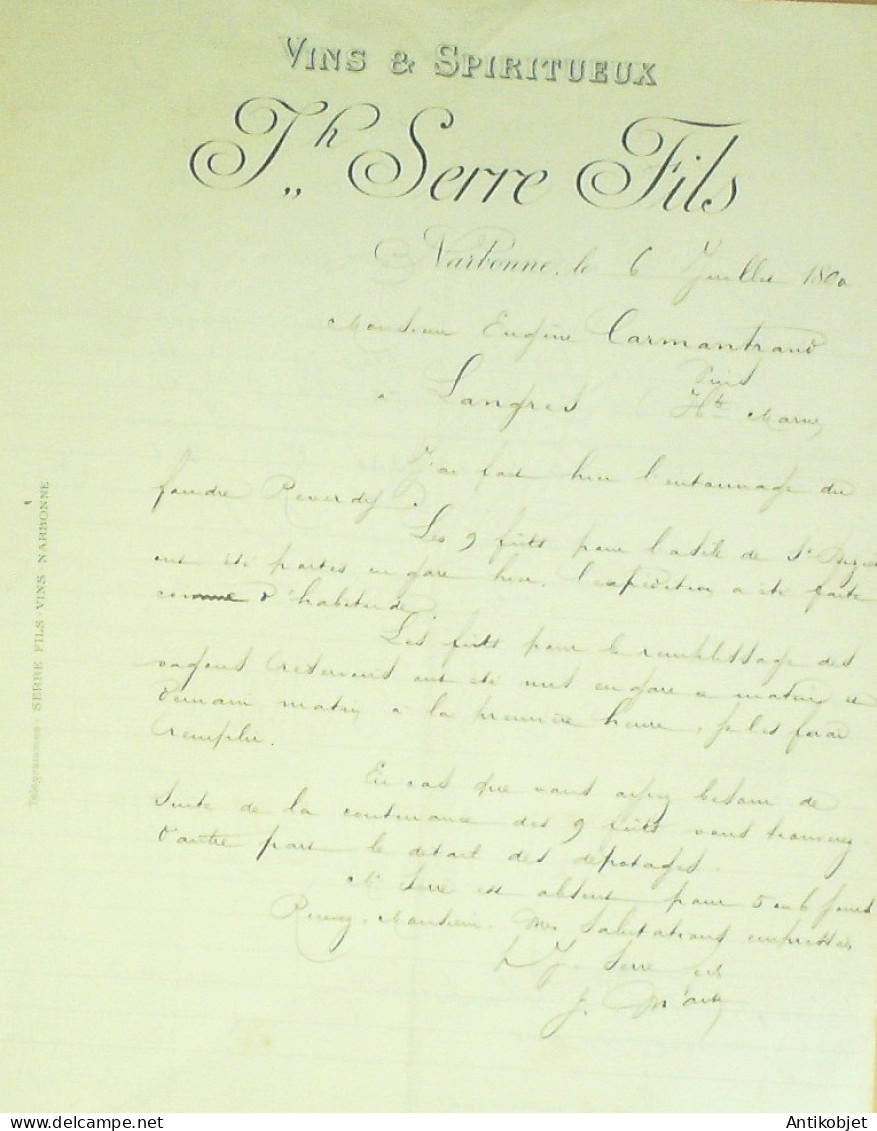 VINS & SPIRITUEUX
J,,h Serre Fils
Narbonne, le 6 Juillet 18
Monsieur Eugène Carmantrand
Vins
à Langres Hte Marne
J'ai fait hier l'entonnage du
foudre Reverdy.
Les 9 fûts pour l'asile de St
ont été portés en gare hier, l'expédition a été faite
comme d'habitude
Les fûts pour le remplissage des
wagons réservoirs ont été mis en gare ce matin et
demain matin à la première heure, je les ferai
remplir.
En cas que vous ayez besoin de
suite de la contenance des 9 fûts vous trouverez
d'autre part le détail des dépotages.
Mr Serre est absent pour 5 ou 6 jours
Recevez, Monsieur, mes salutations empressées
p J. Serre fils
J.
Télégrammes: SERRE FILS VINS NARBONNE
Antikobjet